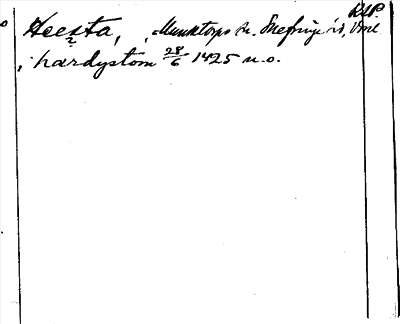 RAP.
Heesta, Munktorps sn. Snefringe hd, Vml
i hardystom 28/6 1425 n.o.